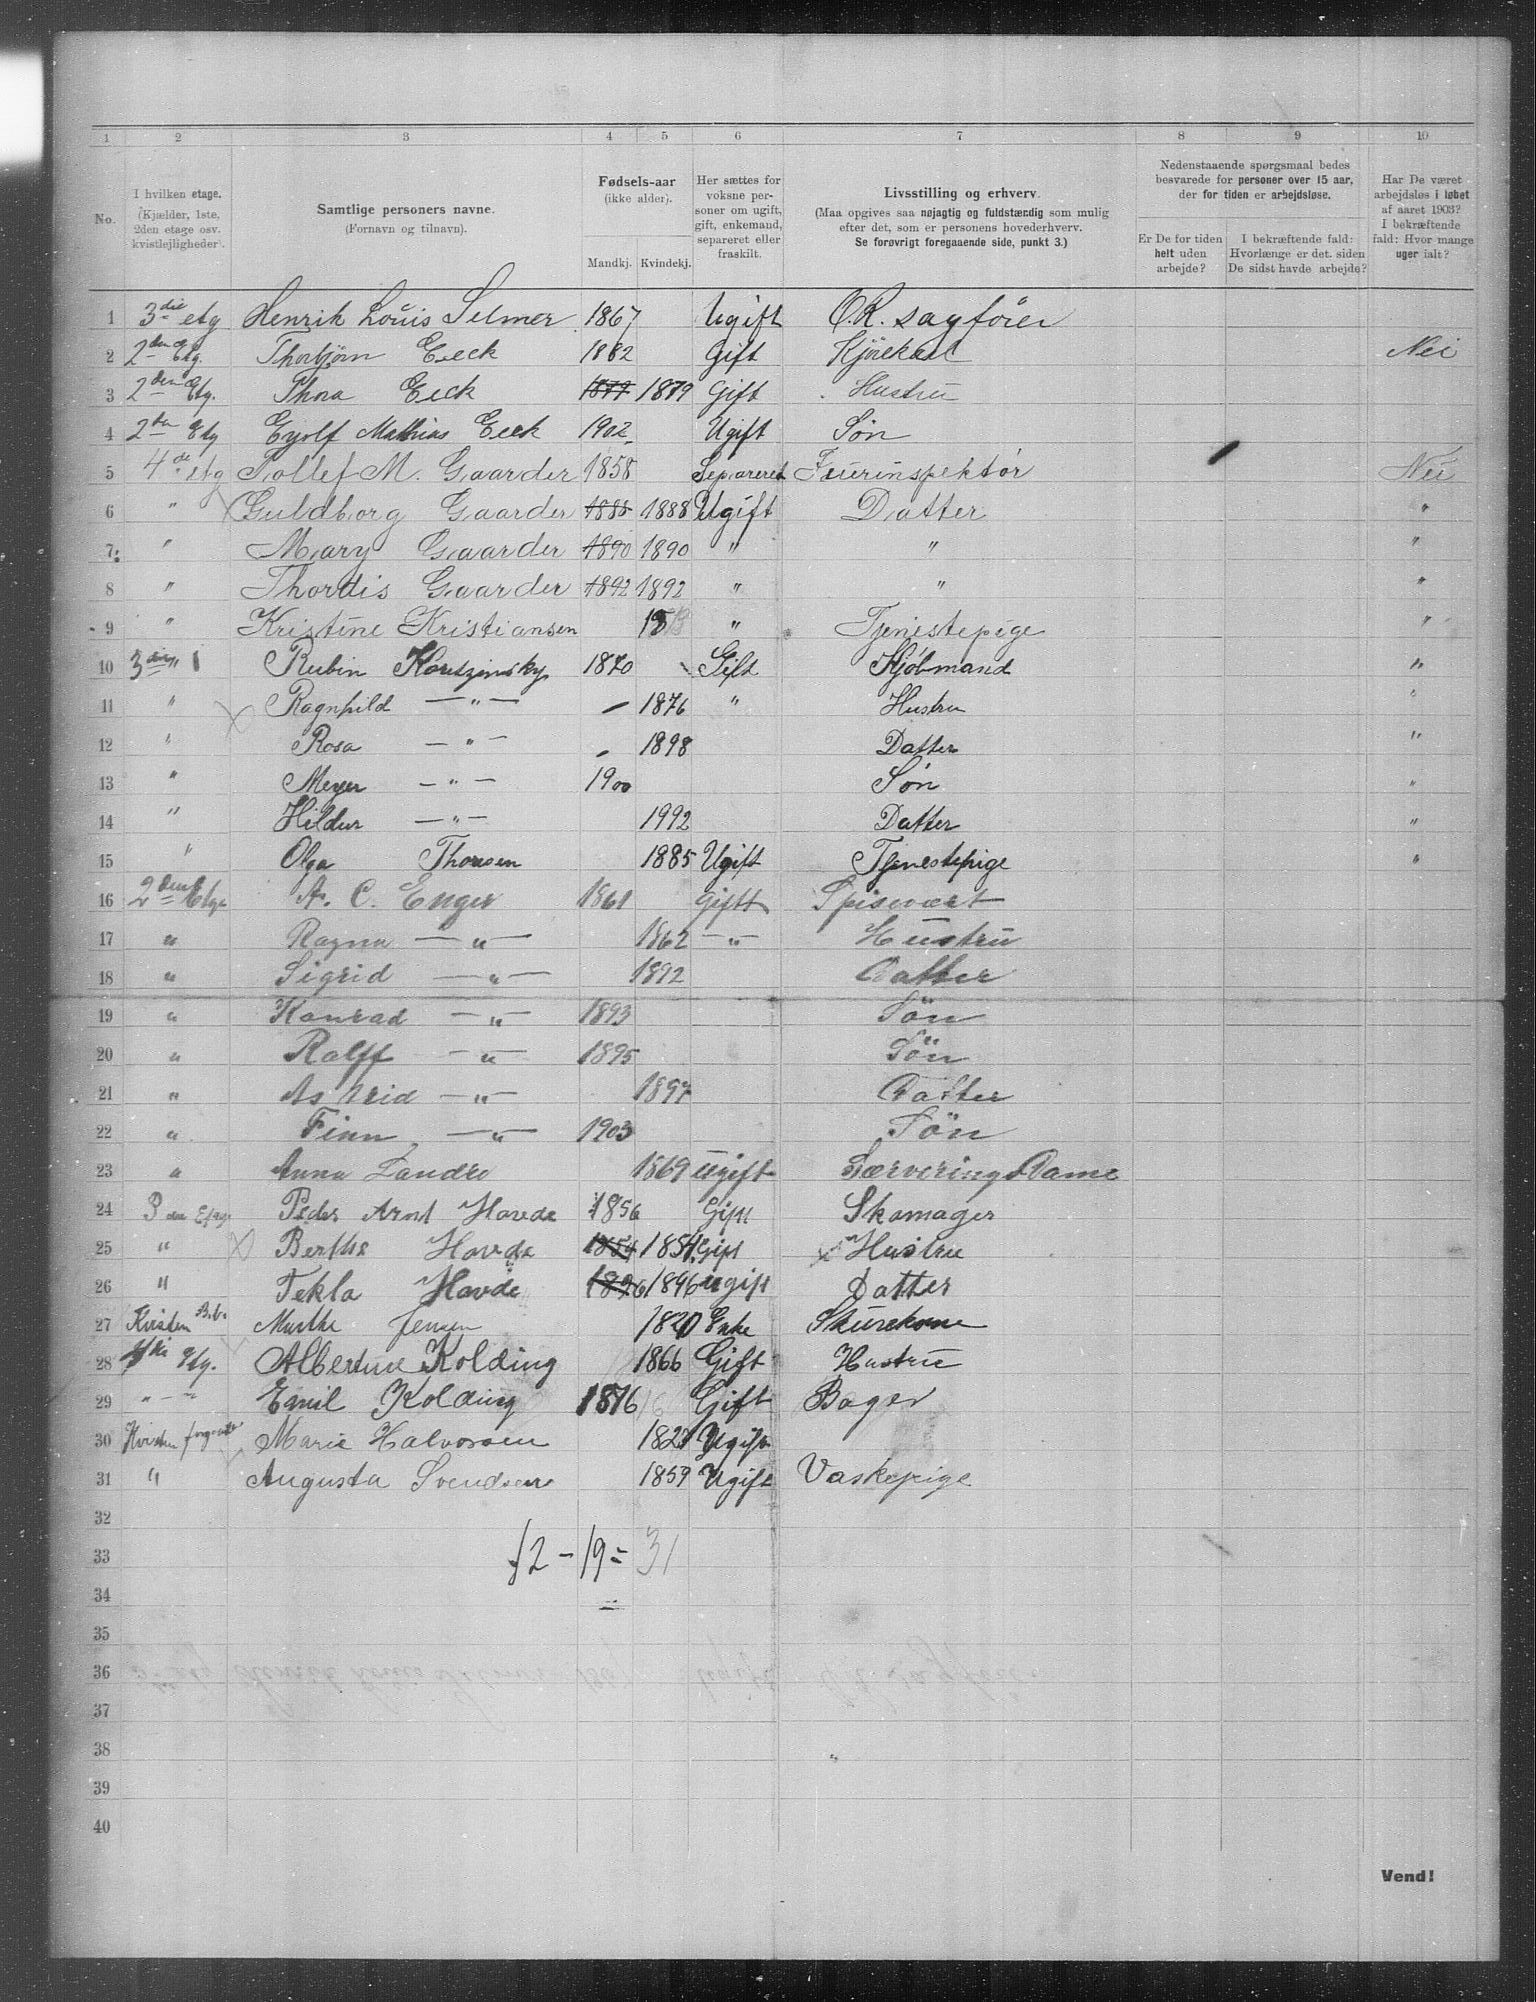 1 2 3 4 5 6 7 8 9 10
No.
I hvilken etage.
(Kjælder, 1ste, 2den etage osv. kvistlejligheder).
Samtlige personers navne.
(Fornavn og tilnavn).
Fødsels-aar
(ikke alder).
Mandkj. Kvindekj.
Her sættes for voksne personer om ugift, gift, enkemand, separeret eller fraskilt.
Livsstilling og erhverv.
(Maa opgives saa nøjagtig og fuldstændig som mulig efter det, som er personens hovederhverv.
Se forøvrigt foregaaende side, punkt 3.)
Nedenstaaende spørgsmaal bedes besvarede for personer over 15 aar, der for tiden er arbejdsløse.
Er De for tiden helt uden arbejde?
I bekræftende fald: Hvorlænge er det. siden De sidst havde arbejde?
Har De været arbejdsløs i løbet af aaret 1903? I bekræftende fald: Hvor mange uger ialt?
1 3die etg Henrik Louis Selmer 1867 Ugift O.R. sagfører
2 2den Etg. Thorbjørn Eeck 1882 Gift Kjørekarl Nei
3 2den Etg. Thora Eeck 1879 Gift Hustru
4 2den Etg Eyolf Mathias Eeck 1902 Ugift Søn
5 4de etg Tollef M. Gaarder 1858 Separeret Fuerinspektør Nei
6 " Guldborg Gaarder 1888 1888 Ugift Datter "
7 " Mary Gaarder 1890 1890 " " "
8 " Thordis Gaarder 1892 1892 " " "
9 " Kristine Kristiansen " Tjenestepige "
10 3die " Rubin 1870 Gift Kjøbmand "
11 " Ragnhild — " — 1876 " Hustru "
12 " Rosa — " — 1898 Datter "
13 " Meyer — " — 1900 Søn "
14 " Hildur — " — 1992 Datter "
15 " Olga Thorsen 1885 Ugift Tjenestepige "
16 2den Etge A. C. Enger 1861 Giftt Spisevært
17 " Ragna — " — 1862 — " — Hustru
18 " Sigrid — " — 1892 Datter
19 " Konrad — " — 1893 Søn
20 " Ralff — " — 1895 Søn
21 " Astrid — " — 1897 Datter
22 " Finn — " — 1903 Søn
23 " Anna 1869 ugift Særverings Dame
24 3 die Etag Peder Arnt Havde 1856 Gift Skomager
25 " Berthe Havde 1854 1854 Gift Hustru
26 " Tekla Havde 1896 1896 ugift Datter
27 Kvisten Marthe Jensen 1820 Enke Skurekone
28 4de Etg. Albertine Kolding 1866 Gift Hustru
29 " - " Emil Kolding 1876 Gift Bager
30 Kvisten Marie Halvorsen Ugift
31 " Augusta Svendsen 1859 Ugift Vaskepige
32
33 12 - 19 = 31
34
35
36
37
38
39
40
Vend!